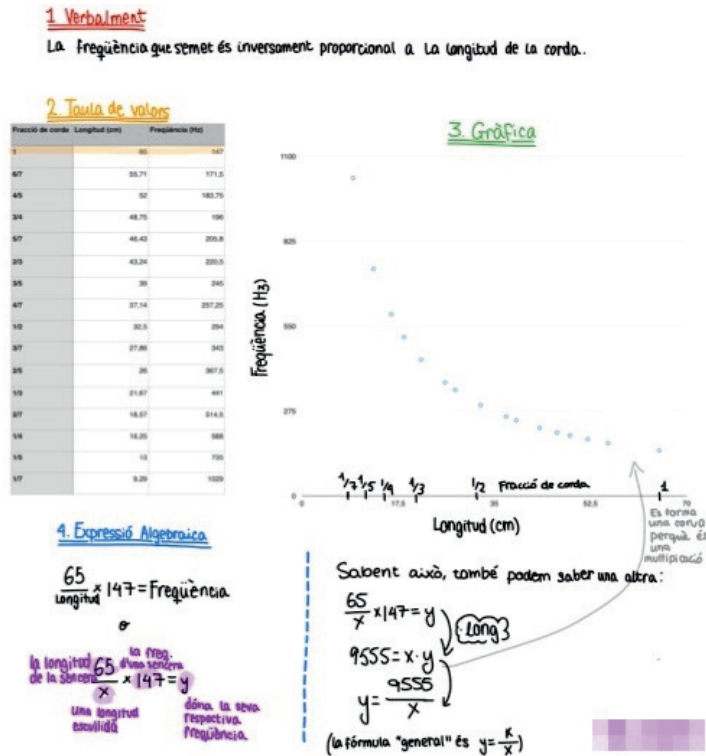 1 Verbalment
La freqüència que semet és inversament proporcional a la longitud de la corda.
2. Taula de valors
Fracció de corda Longitud (cm) Freqüència (Hz)
1 65 147
6/7 55,71 171,5
4/5 52 183,75
3/4 48,75 196
5/7 46,43 205,8
2/3 43,24 220,5
3/5 39 245
4/7 37,14 257,25
1/2 32,5 294
3/7 27,86 343
2/5 26 367,5
1/3 21,67 441
2/7 18,57 514,5
1/4 16,25 588
1/5 13 735
1/7 9,29 1029
3. Gràfica
1100
825
550
275
0
Freqüència (Hz)
1/7 1/5 1/4 1/3 1/2 Fracció de corda 1
0 17,5 35 52,5 70
Longitud (cm)
Es forma
una corva
perquè és
una
multiplicació
4. Expressió Algebraica
65/Longitud × 147 = Freqüència
o
la longitud de la sencera
la freq. d'una sencera
65/x × 147 = y
una longitud escullida
dóna la seva respectiva freqüència
Sabent això, també podem saber una altra:
65/x × 147 = y
(Long)
9555 = x · y
y = 9555/x
(la fórmula "general" és y = k/x)